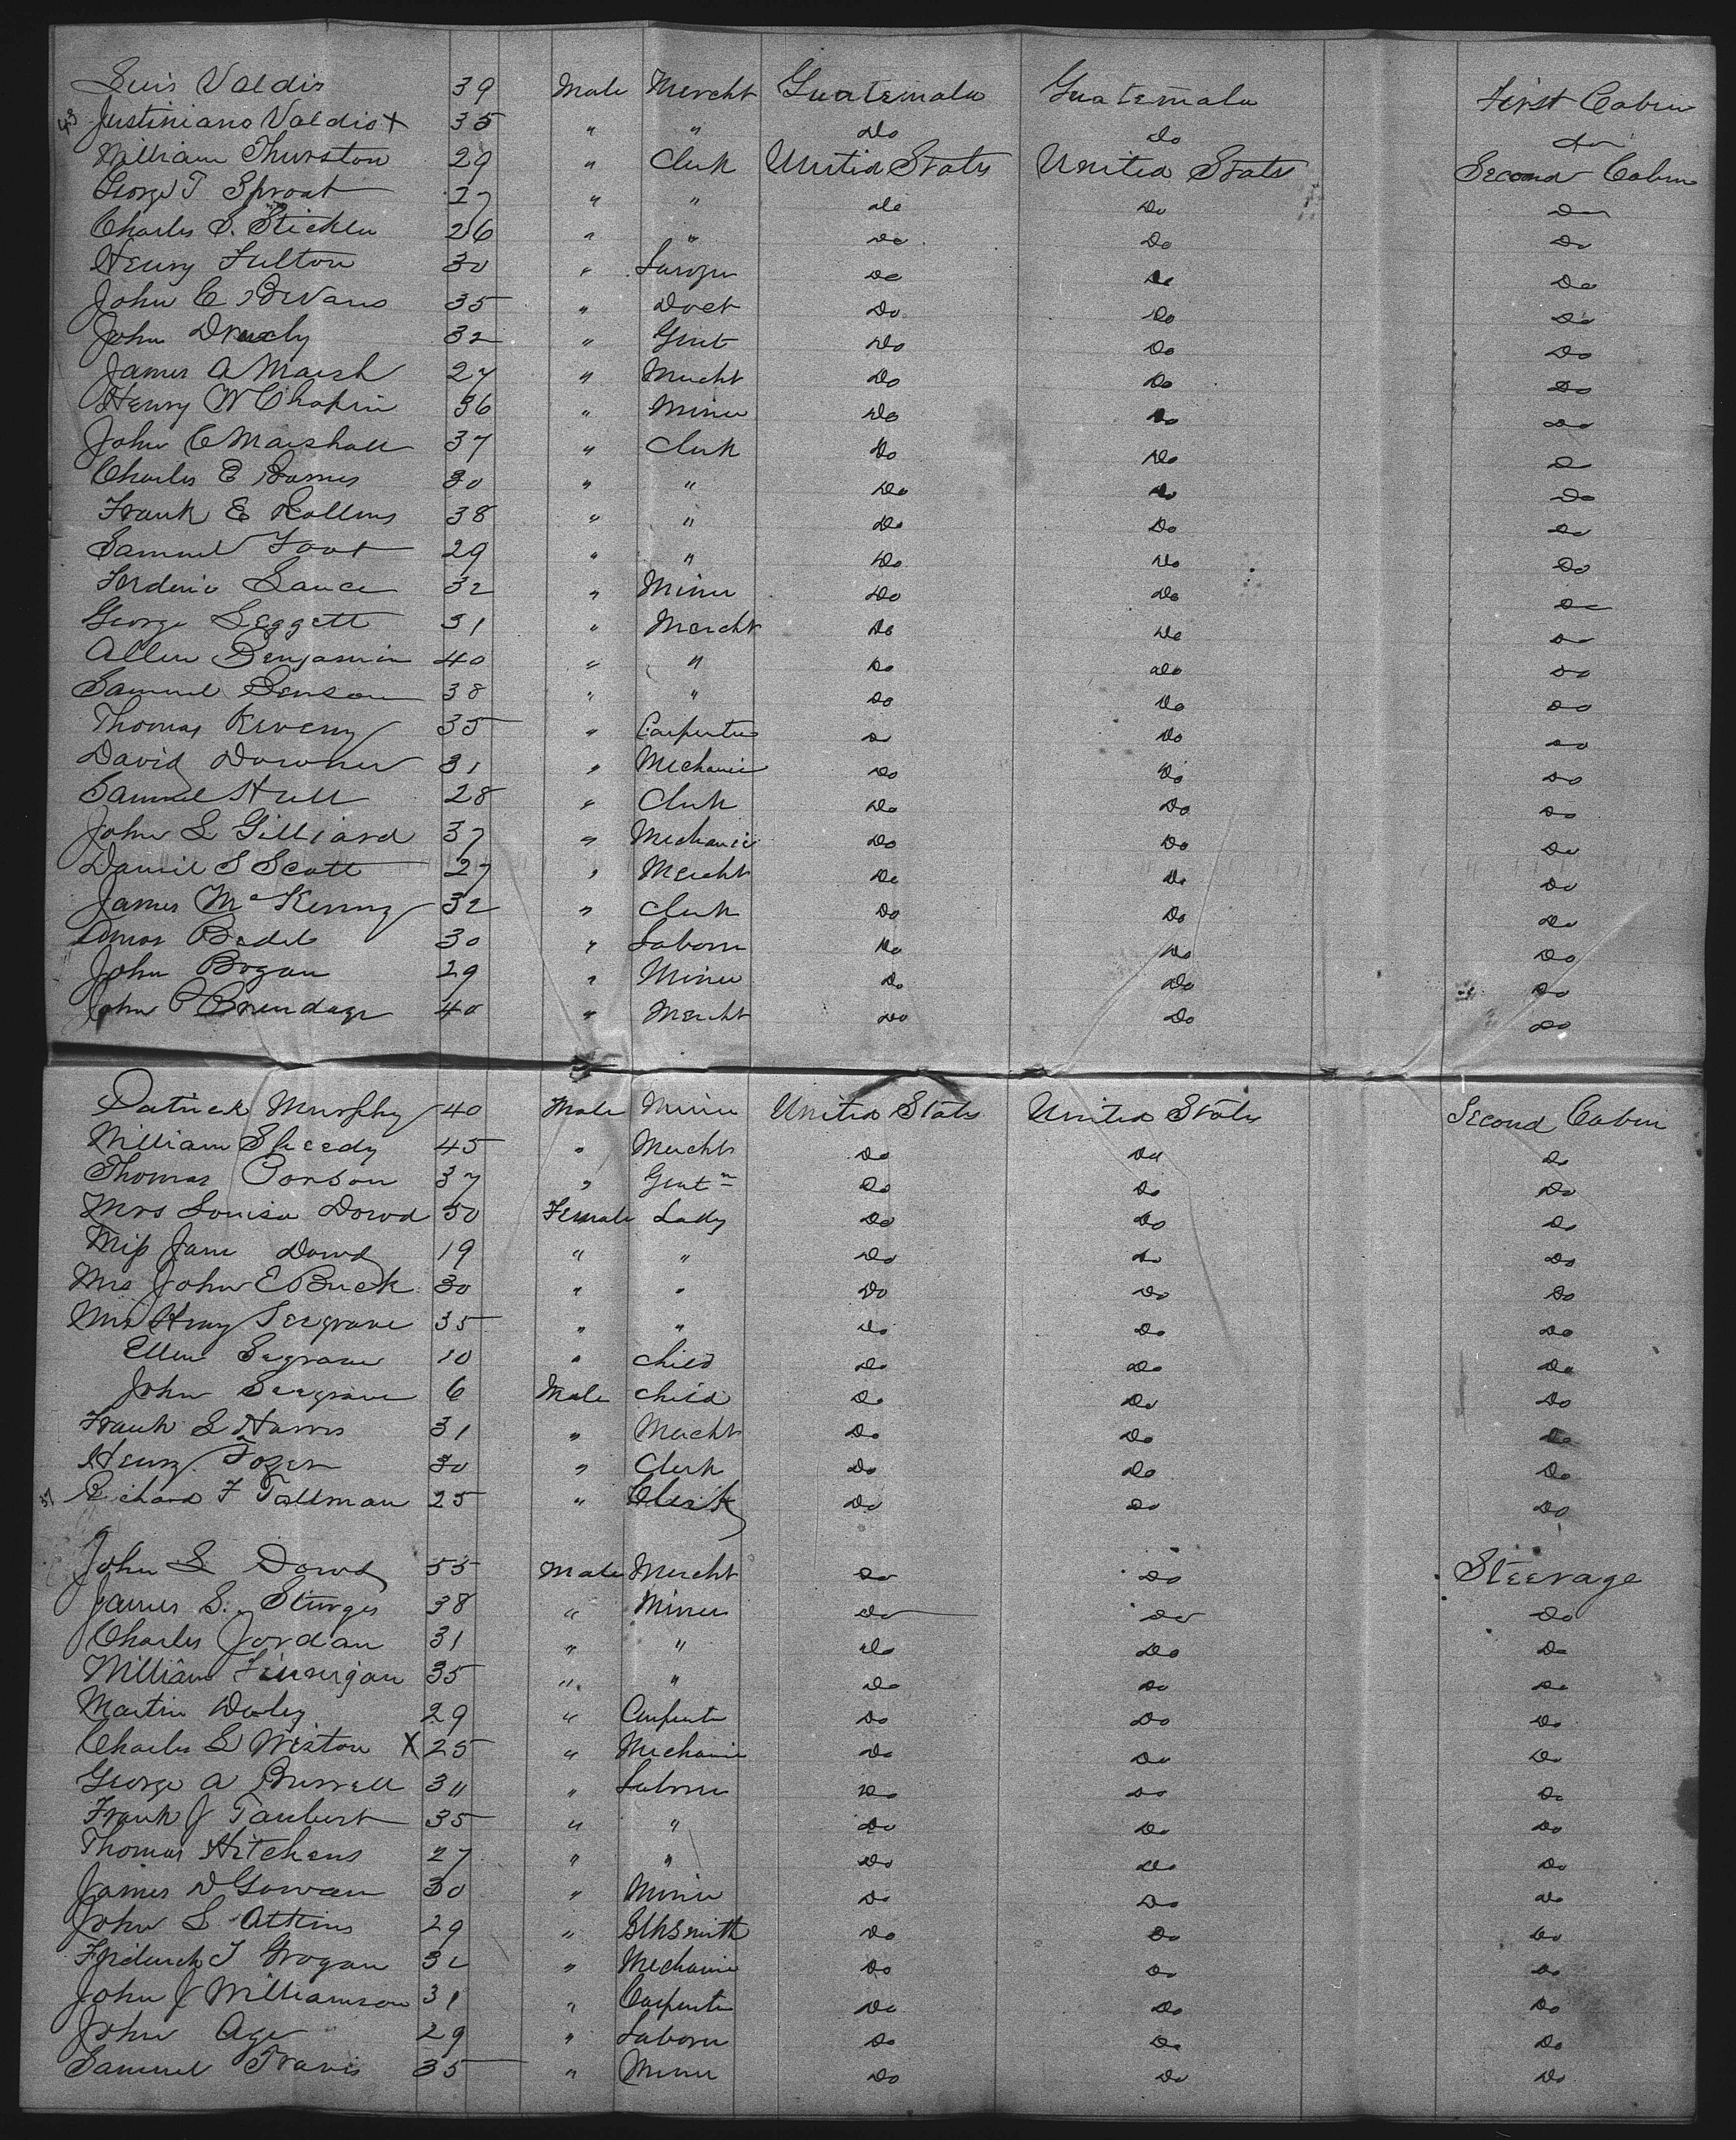 Luis Valdis 39 Male Mercht Guatemala Guatemala First Cabin
43 Justiniano Valdis + 35 " " Do Do Do
William Thurston 29 " Clerk United States United States Second Cabin
George T Sproat 27 " " do Do Do
Charles S. Stickler 26 " " Do Do Do
Henry Fulton 30 " Do Do Do
John C Bevans 35 " Doct Do Do Do
John 32 " Gent Do Do Do
James A Marsh 27 " Mercht Do Do Do
Henry W Chapin 36 " Miner Do Do Do
John C Marshall 37 " Clerk Do Do Do
Charles E Barnes 30 " " Do Do Do
Frank E Rollins 38 " " Do Do Do
Samuel Foot 29 " " Do Do Do
Frederic Lance 32 " Miner Do Do Do
George Leggett 31 " Mercht Do Do Do
Allen Benjamin 40 " " Do do Do
Samuel Benson 38 " " Do Do Do
Thomas Keveny 35 " Carpenter Do Do Do
David Downer 31 " Mechanic Do Do Do
Samuel Hull 28 " Clerk Do Do Do
John L Gilliard 37 " Mechanic Do Do Do
Daniel S Scott 27 " Mercht Do Do Do
James McKenny 32 " Clerk Do Do Do
Amos Bedel 30 " Laborer Do Do Do
John Bogan 29 " Miner Do Do Do
John P Brundage 40 " Mercht Do Do Do
Patrick Murphy 40 Male Miner United States United States Second Cabin
William Sheedy 45 " Mercht Do Do Do
Thomas Corson 37 " Gentn Do Do Do
Mrs Louisa Dowd 50 Female Lady Do Do Do
Miss Jane Dowd 19 " " Do Do Do
Mrs John E Buck 30 " " Do Do Do
Mrs Henry Seegrave 35 " " Do Do Do
Ellen Segrave 10 " Child Do Do Do
John Seegrave 6 Male Child Do Do Do
Frank L Harris 31 " Mercht Do Do Do
Henry Tozer 30 " Clerk Do Do Do
37 Richard F Tallman 25 " Clerk Do Do Do
John L Dowd 55 Male Mercht Do Do Steerage
James S. Sturges 38 " Miner Do Do Do
Charles Jordan 31 " " Do Do Do
William Finnigan 35 " " Do Do Do
Martin Daley 29 " Carpenter Do Do Do
Charles L Weston X 25 " Mechanic Do Do Do
George A Burrell 30 " Laborer Do Do Do
Frank J Taubert 35 " " Do Do Do
Thomas Hitchens 27 " " Do Do Do
James D Gowan 30 " Miner Do Do Do
John L Atkins 29 " Blksmith Do Do Do
Frederick T Grogan 32 " Mechanic Do Do Do
John J Williamson 31 " Carpenter Do Do Do
John Age 29 " Laborer Do Do Do
Samuel Travis 35 " Miner Do Do Do